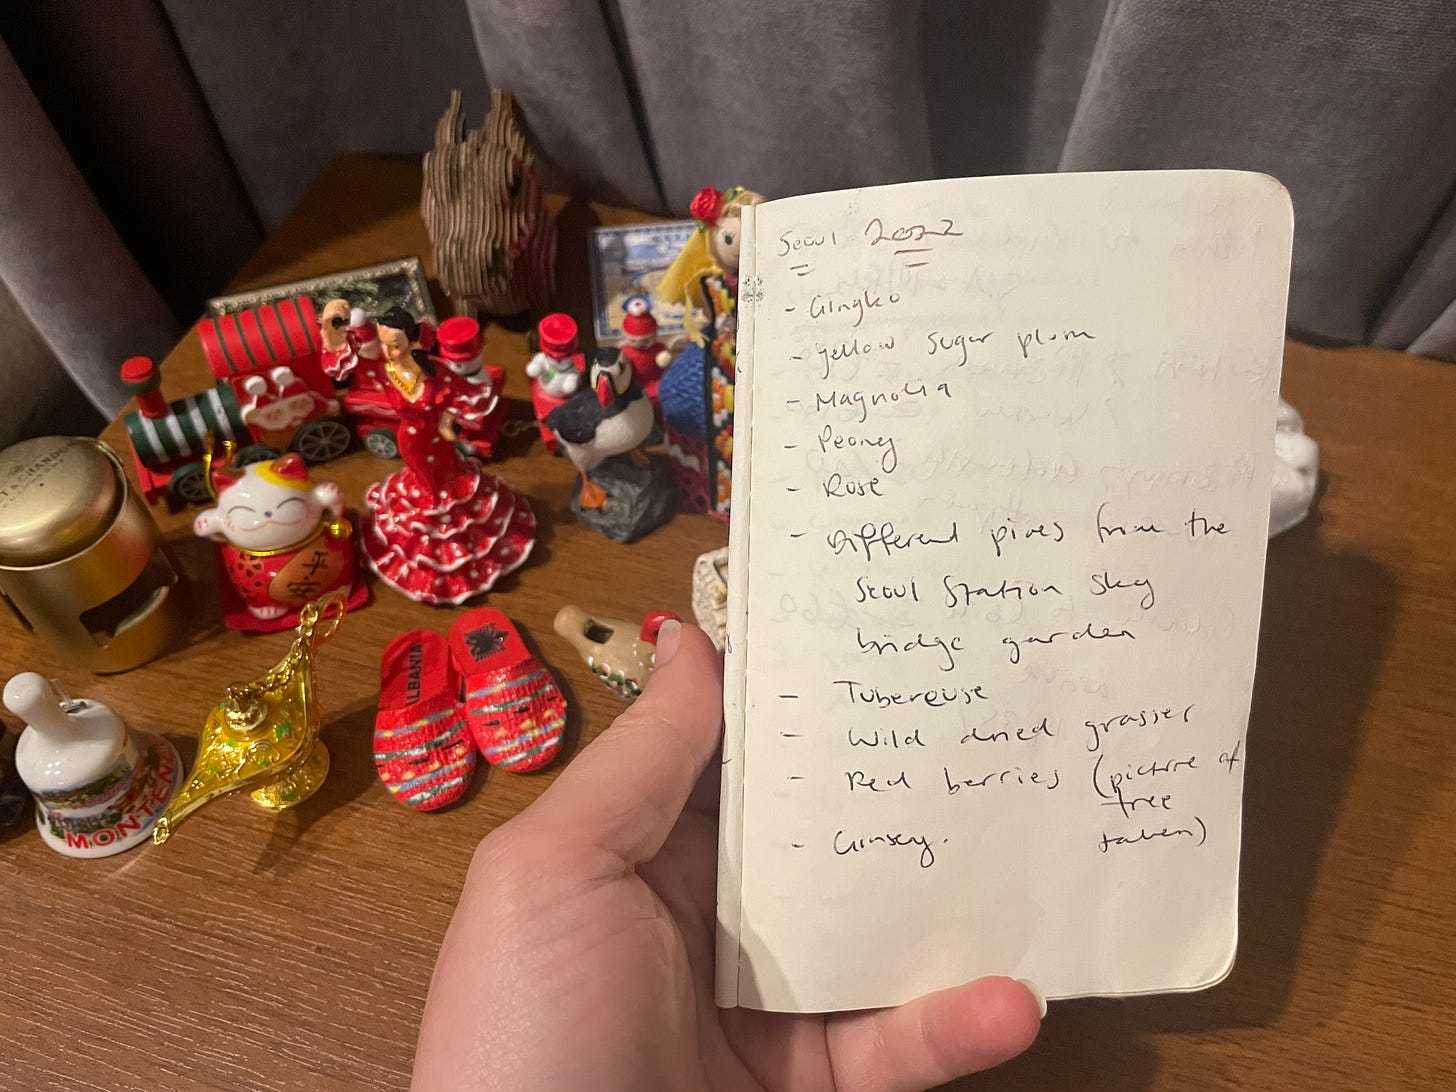 Seoul 2022
- Gingko
- Yellow sugar plum
- Magnolia
- Peony
- Rose
- Different pines from the
Seoul Station sky
bridge garden
- Tubereuse
- Wild dried grasses
- Red berries (picture of
tree
taken)
- Ginseng.
ALBANIA
MONTENE